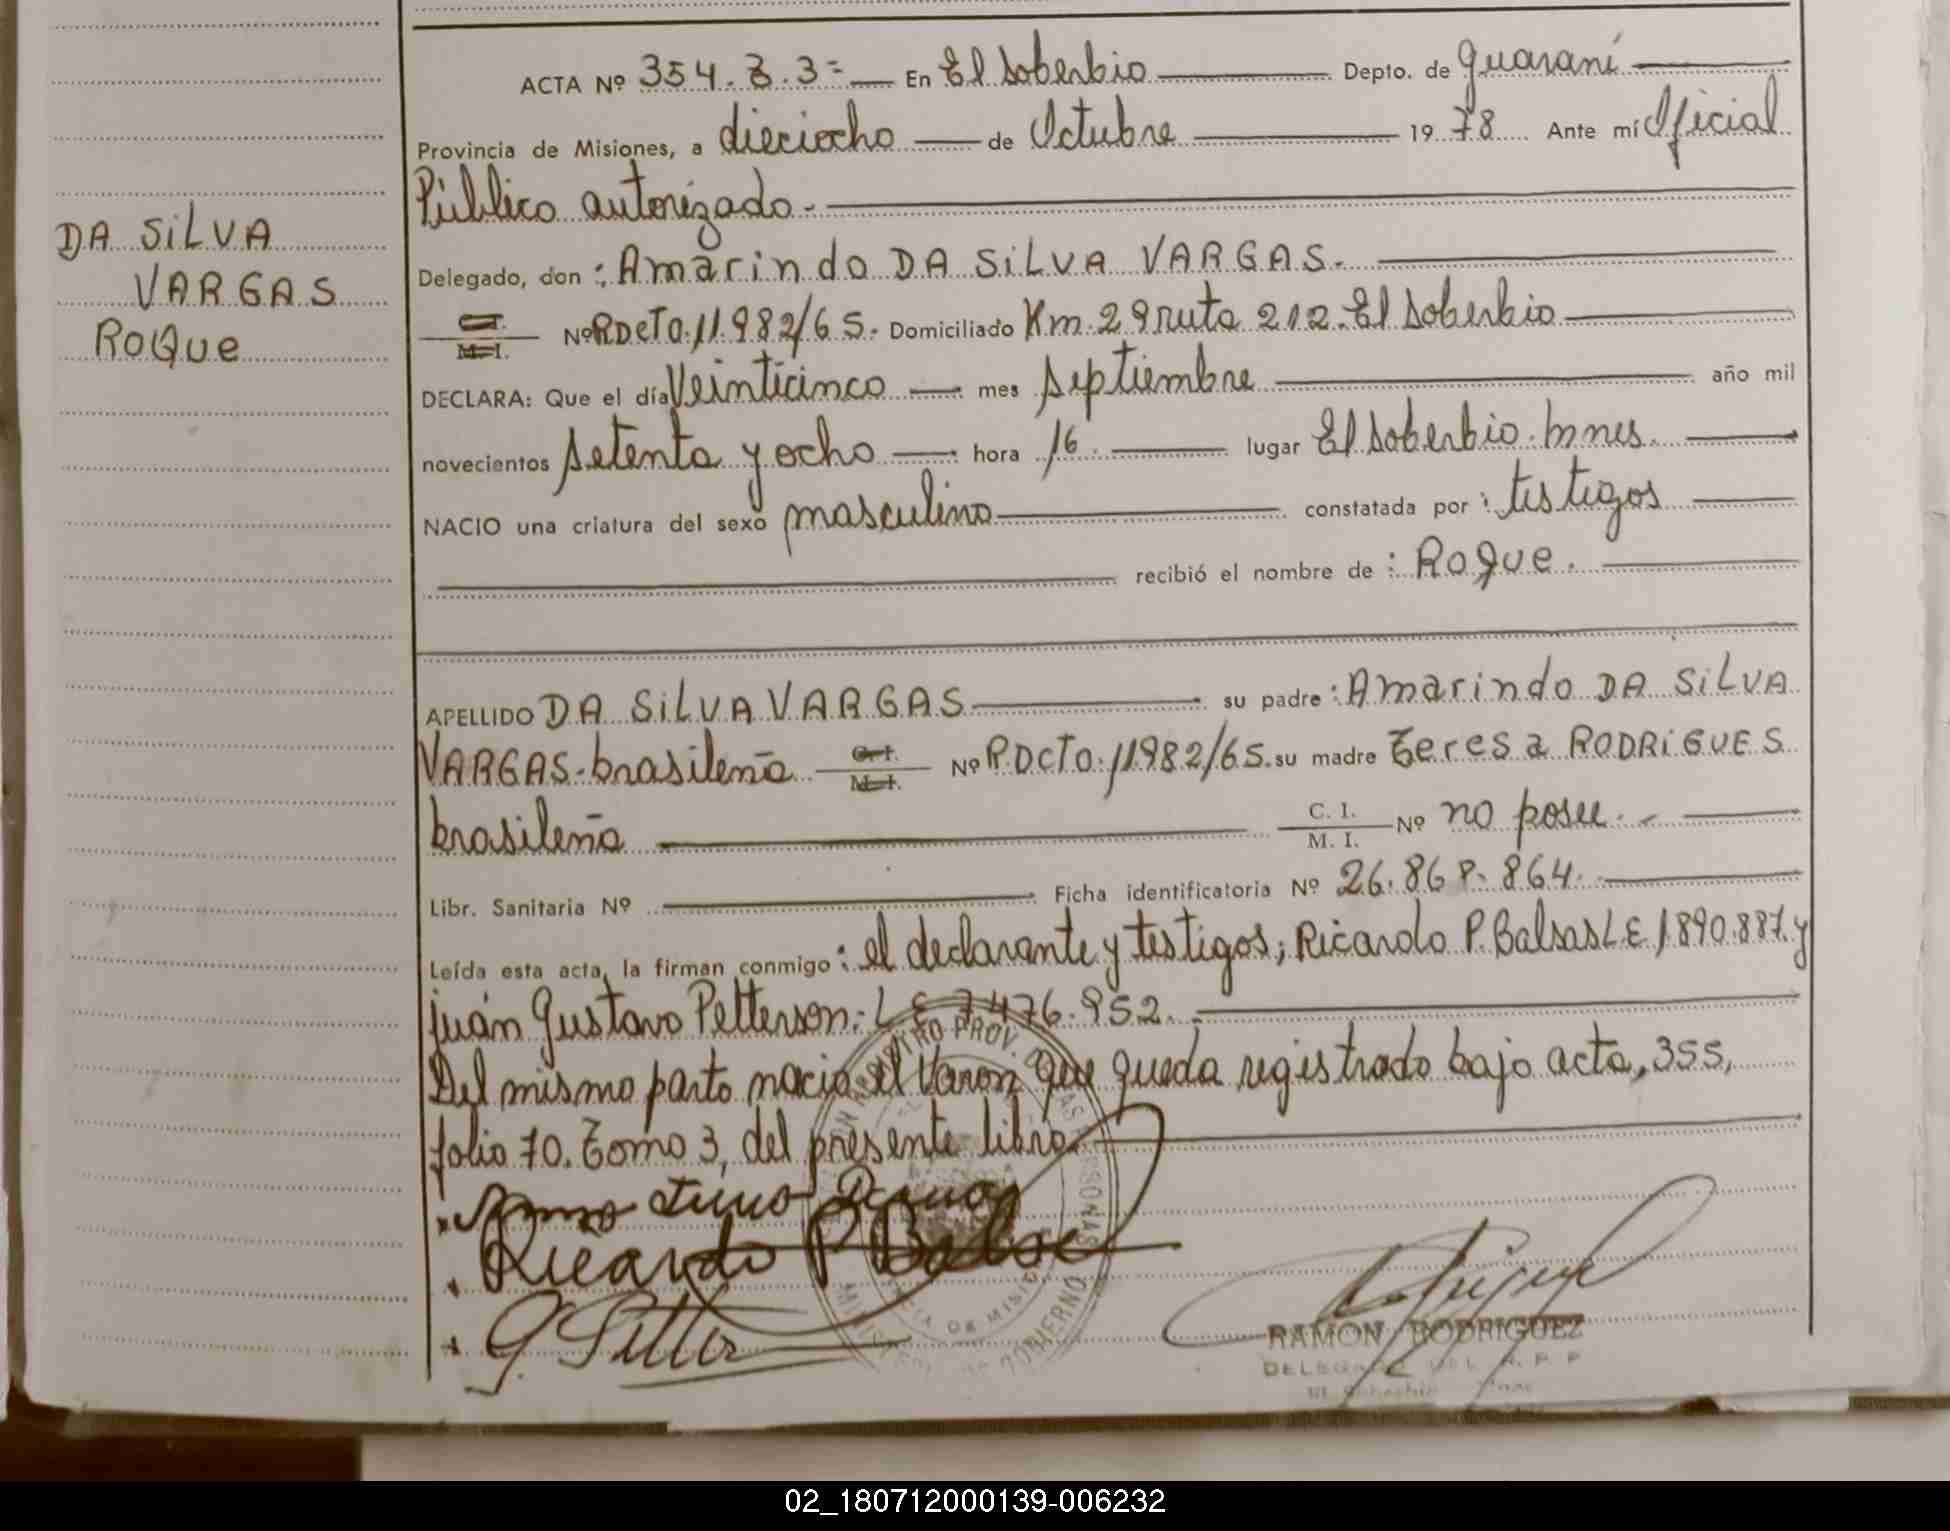 ACTA Nº 354.T.3= En El Soberbio Depto. de Guaraní
Provincia de Misiones, a dieciocho de Octubre 1978 Ante mí Oficial
Público autorizado.-
DA SiLVA
VARGAS
RoQue
Delegado, don: Amarindo DA SiLVA VARGAS.
C.I.
M.I.
Nº R.DCTO.11.982/65. Domiciliado Km. 29 ruta 212. El Soberbio
DECLARA: Que el día Veinticinco mes Septiembre año mil
novecientos setenta y ocho hora 16. lugar El Soberbio. Mnes.
NACIO una criatura del sexo masculino constatada por: testigos
recibió el nombre de: Roque.
APELLIDO DA SiLVA VARGAS su padre: Amarindo DA SiLVA
VARGAS-brasileña C.I. M.I. Nº R.DCTO.11982/65. su madre Teresa RODRiGUES
brasileña C. I. M. I. Nº no posee.-
Libr. Sanitaria Nº Ficha identificatoria Nº 26.868.864.
Leída esta acta, la firman conmigo: el declarante y testigos; Ricardo P. Balsas L E 1.890.887. y
juán Gustavo Petterson.- L E 7.476.952.
Del mismo parto nació el Varon que queda registrado bajo acta, 355,
folio 70. Tomo 3, del presente libro.
Ricardo P Balsa
RAMON RODRIGUEZ
02_180712000139-006232